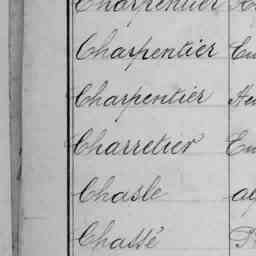 Charpentier
Charpentier
Charpentier
Charretier
Chasle
Chassé